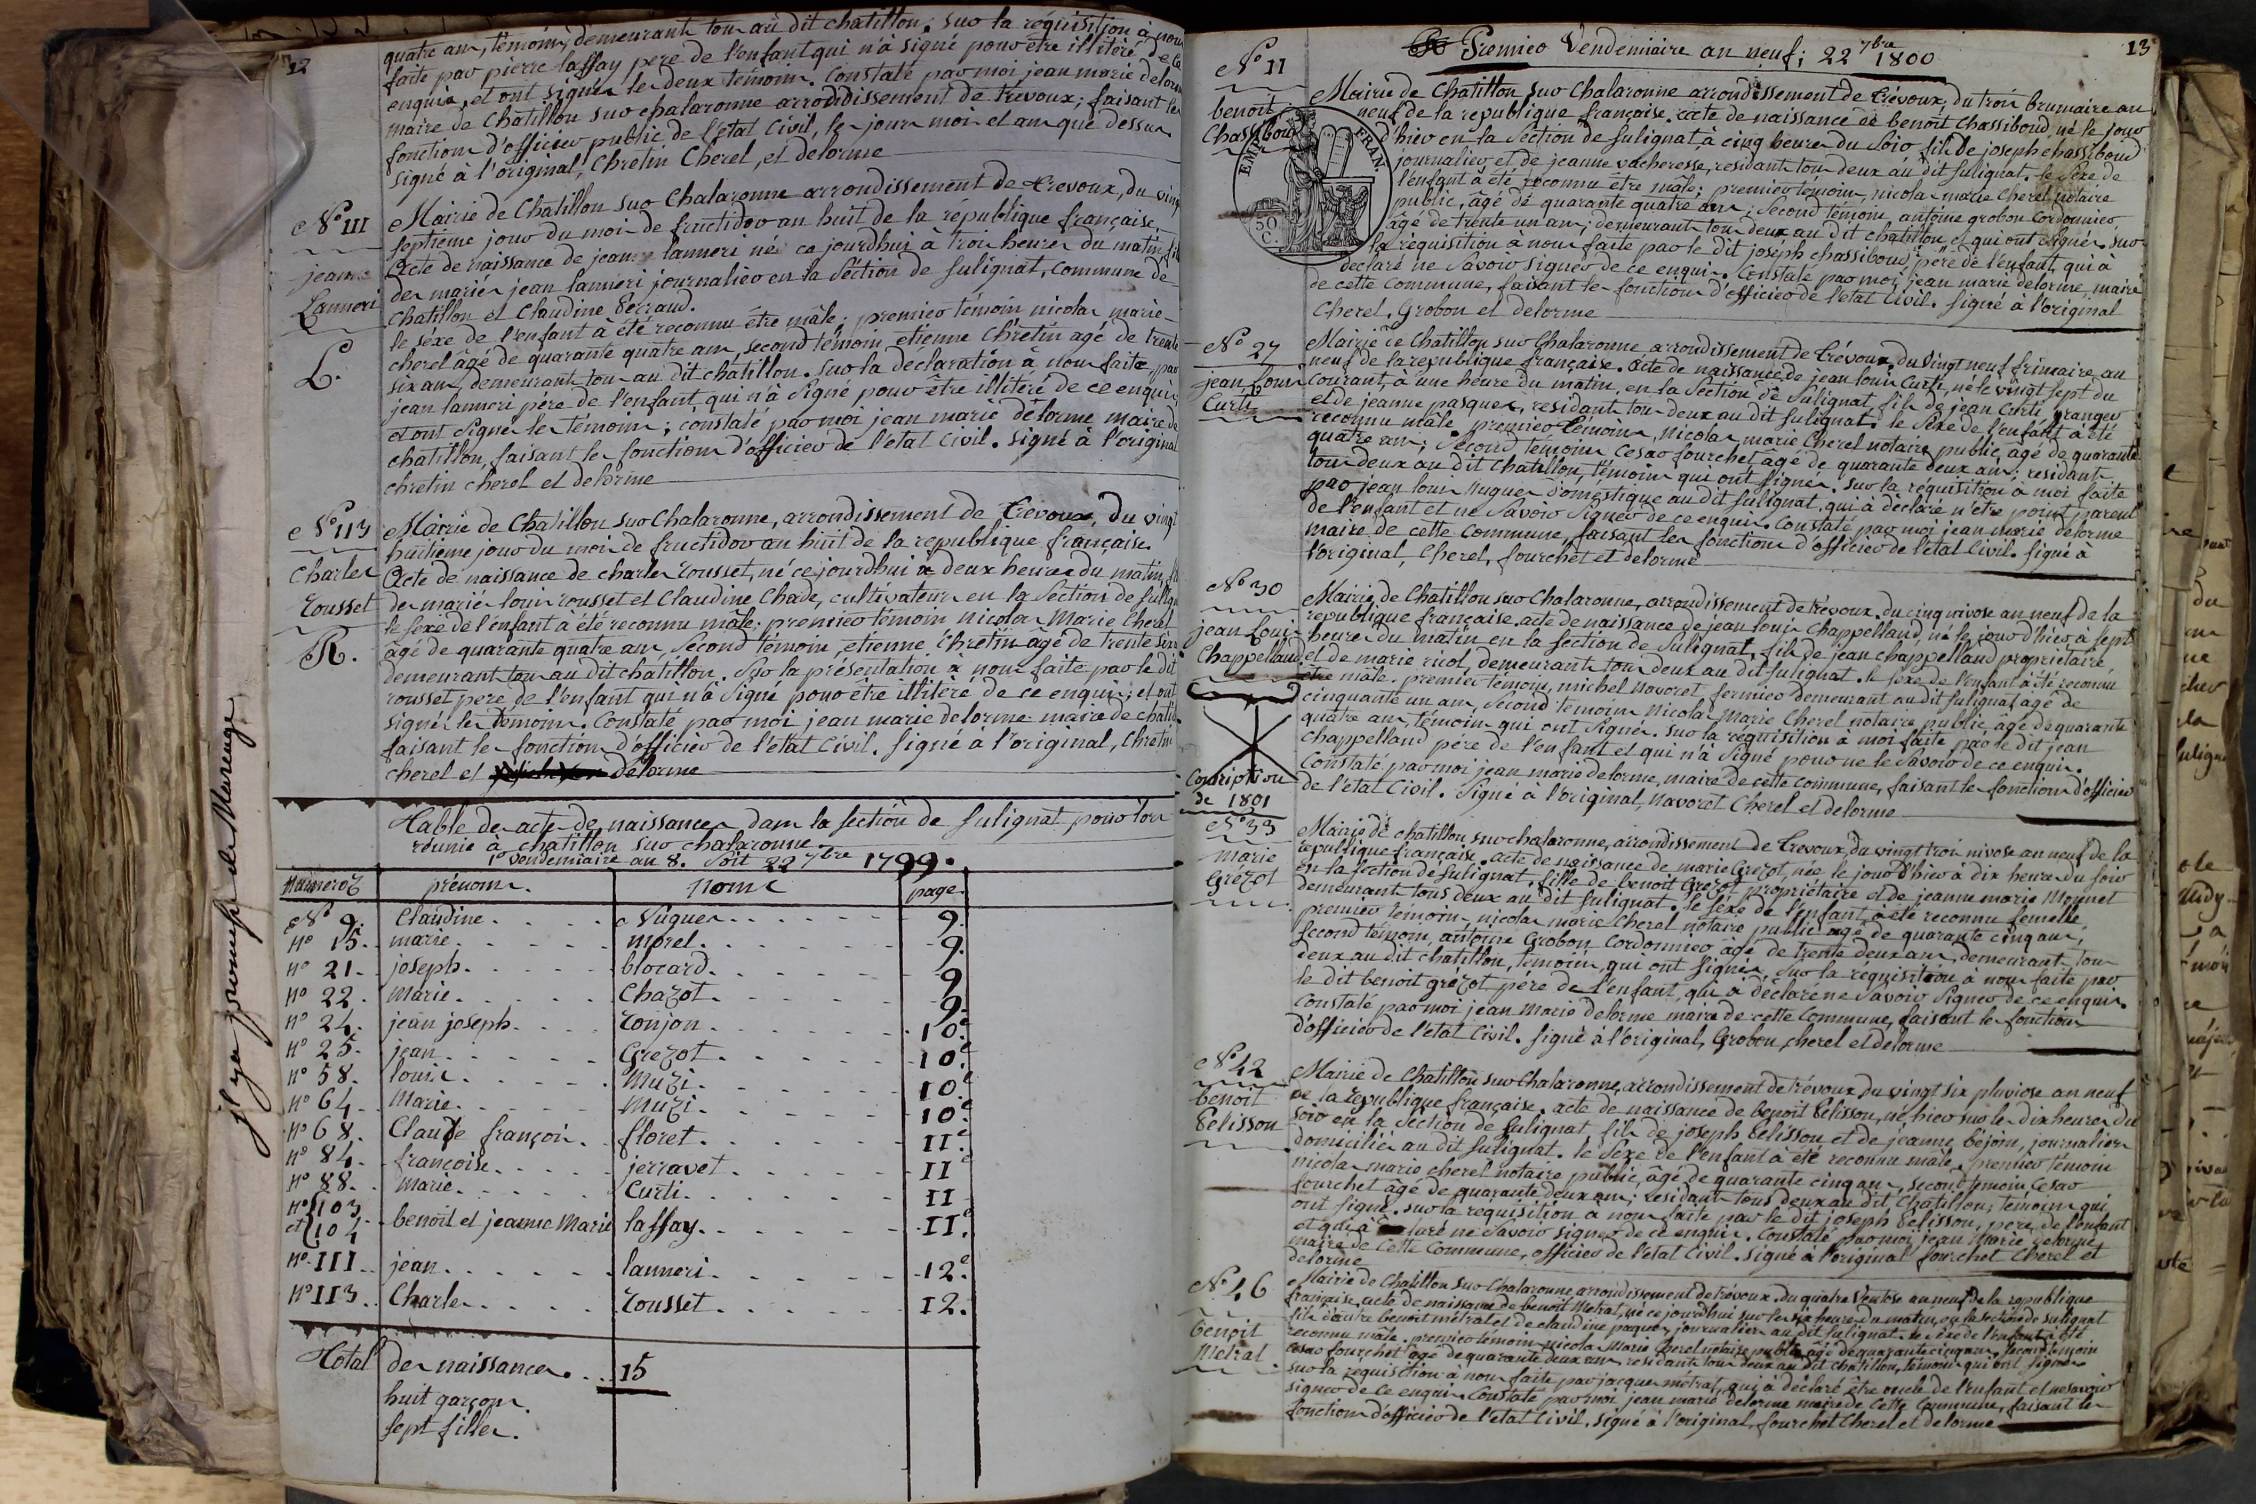 12
quatre ans, témoins, demeurants tous au dit chatillon. sur la réquisition à nous
faite par pierre laffay pere de l'enfant qui n'à signé pour être illitéré de ce
enquis, et ont signés les deux témoins. Constaté par moi jean marie delorme
maire de Chatillon sur chalaronne arrondissement de trevoux; faisant les
fonctions d'officier public de l'état Civil, les jours mois et an que dessus
signé à l'original, Chretin Cherel, et delorme
N° III
jean
Lanneri
L.
Mairie de Chatillon sur Chalaronne arrondissement de trevoux, du vingt
septieme jour du mois de fructidor an huit de la république française.
Acte de naissance de jean lanneri né ce jourdhui à trois heures du matin fils
des mariés jean lanneri journalier en la Séction de sulignat, commune de
Chatillon et Claudine Perraud.
le séxe de l'enfant à été reconnu être mâle; premier témoin nicolas marie
cherel âgé de quarante quatre ans second témoin etienne Chrétin agé de trente
six ans, demeurants tous au dit châtillon. sur la déclaration à nous faite, par
jean lanneri pére de l'enfant, qui n'à Signé pour être illitéré de ce enquis
et ont Signé les témoins; constaté par moi jean marie délorme maire de
chatillon, faisant les fonctions d'officier de l'état Civil. signé à l'original
chretin cherel et delorme
N° 113
Charles
rousset
R.
Mairie de Chatillon sur Chalaronne, arrondissement de trevoux, du vingt
huitième jour du mois de fructidor an huit de la republique française.
Acte de naissance de charles rousset, né ce jourdhui à deux heures du matin, fils
des mariés louis rousset et Claudine Chade, cultivateurs en la Section de sulignat
le sexe de l'enfant à été reconnu mâle; premier témoin nicolas Marie Cherel
âgé de quarante quatre ans, second témoin, etienne Chretin âgé de trente six
demeurants tous au dit chatillon. Sur la présentation à nous faite par le dit
rousset pere de l'enfant qui n'à Signé pour être illitéré de ce enquis; et ont
signé les témoins. Constaté par moi jean marie delorme maire de chatillon
faisant les fonctions d'officier de l'état Civil. signé à l'original, Chretin
cherel et delorme
Table des actes de naissances dans la section de sulignat pour lors
réunie à chatillon sur chalaronne.
1er vendemiaire an 8. soit 22 7bre 1799.
numeros prénoms. noms page.
N° 9. Claudine. Nugues. 9.
n° 15. marie. morel. 9.
n° 21. joseph. blocard. 9
n° 22. marie. Chazot. 9.
n° 24. jean joseph. ronjon. 10.e
n° 25. jean. Grezot. 10.e
n° 58. louis. muzi. 10.e
n° 64. Marie. muzi. 10.e
n° 68. Claude françois. floret. II.e
n° 84. françoise. jerravet. II.e
n° 88. marie. Curti. II
n° 103 et 104 benoit et jeanne Marie laffay. II.e
n° III. jean. lanneri. 12.e
n° 113. Charles. rousset. 12.
Total des naissances. 15
huit garçons.
sept filles.
jl y a prouesse de Marenge
13
Premier Vendemiaire an neuf; 22 7bre 1800
N° 11
benoit
Chassiboud
EMP. FRAN.
50 C.
Mairie de Chatillon sur Chalaronne arrondissement de trévoux, du trois brumaire an
neuf de la republique française. acte de naissance de benoit Chassiboud, né le jour
d'hier en la Section de sulignat à cinq heures du Soir fils de joseph chassiboud
journalier et de jeanne vacheresse, residants tous deux au dit sulignat. le sexe de
l'enfant à été reconnu être mâle; premier témoin, nicolas marie Cherel notaire
public, âgé de quarante quatre ans; second témoin, antoine grobon Cordonnier
âgé de trente un ans; demeurants tous deux au dit chatillon, et qui ont signés. sur
la requisition à nous faite par le dit joséph chassiboud, pere de l'enfant, qui à
declaré ne savoir signer de ce enquis. Constaté par moi jean marie delorme, maire
de cette Commune, faisant les fonctions d'officier de l'état Civil. signé à l'original
Cherel, Grobon et delorme
N° 27
jean Louis
Curti
Mairie de Chatillon sur Chalaronne arrondissement de trévoux, du vingt neuf frimaire an
neuf de la republique française. acte de naissance de jean louis Curti, né le vingt sept du
courant, à une heure du matin, en la Section de sulignat, fils de jean Curti granger
et de jeanne pasques, residants tous deux au dit sulignat. le sexe de l'enfant à été
reconnu mâle, premier témoin, nicolas marie Cherel notaire public, âgé de quarante
quatre ans; second témoin Cesar fourchet, âgé de quarante deux ans; residants
tous deux au dit Chatillon, témoins qui ont signés. sur la réquisition à moi faite
par jean louis nugues domestique au dit sulignat, qui à déclaré n'être point parent
de l'enfant et ne savoir signer de ce enquis. Constaté par moi jean marie delorme
maire de cette Commune, faisant les fonctions d'officier de l'état Civil. signé à
l'original, Cherel, fourchet et delorme
N° 30
jean Louis
Chappelland
Conscription
de 1801
Mairie de Chatillon sur Chalaronne, arrondissement de trévoux, du cinq nivose an neuf de la
republique française. acte de naissance de jean louis Chappelland, né le jour d'hier à sept
heures du matin en la section de Sulignat, fils de jean chappelland propriétaire
et de marie ruol, demeurants tous deux au dit sulignat. le sexe de l'enfant à été reconnu
être mâle. premier témoin, michel Navoret fermier demeurant au dit sulignat âgé de
cinquante un ans, second témoin nicolas Marie Cherel notaire public, âgé de quarante
quatre ans, témoins qui ont signés. sur la réquisition à moi faite par le dit jean
chappelland pére de l'enfant et qui n'à signé pour ne le savoir de ce enquis.
Constaté par moi jean marie delorme, maire de cette commune, faisant les fonctions d'officier
de l'état Civil. Signé à l'original, navoret Cherel et delorme
N° 33
marie
Grézot
Mairie de chatillon sur chalaronne, arrondissement de trevoux, du vingt trois nivose an neuf de la
republique française. acte de naissance de marie Grezot, née le jour d'hier à dix heures du soir
en la section de sulignat, fille de benoit Grezot propriétaire et de jeanne marie Moynet
demeurants tous deux au dit sulignat. le séxe de l'enfant à été reconnu femelle,
premier témoin, nicolas marie Cherel notaire public âgé de quarante cinq ans,
second témoin, antoine Grobon Cordonnier âgé de trente deux ans, demeurants tous
deux au dit chatillon, témoins, qui ont signés, sur la requisition à nous faite par
le dit benoit grézot pére de l'enfant, qui à déclaré ne savoir signer de ce enquis.
Constaté par moi jean Marie delorme maire de cette Commune, faisant les fonctions
d'officier de l'état Civil. signé à l'original, Grobon, cherel et delorme
N° 42
benoit
Pelisson
Mairie de Chatillon sur Chalaronne, arrondissement de trévoux, du vingt six pluviose an neuf
de la republique française. acte de naissance de benoit Pelisson, né hier sur les dix heures du
soir en la section de sulignat, fils de joseph Pelisson et de jeanne béjoin, journaliers
domiciliés au dit sulignat. le séxe de l'enfant à été reconnu mâle, premier témoin
nicolas marie cherel notaire public, âgé de quarante cinq ans, second témoin Cesar
fourchet âgé de quarante deux ans; residants tous deux au dit Chatillon; témoins qui
ont signé. sur la requisition à nous faite par le dit joseph Pelisson, pere de l'enfant
et qui à déclaré ne savoir signer de ce enquis. Constaté par moi jean Marie delorme
maire de Cette Commune, officier de l'état Civil. signé à l'original fourchet Cherel et
delorme
N° 46
benoit
Metral
Mairie de Chatillon sur Chalaronne arrondissement de trévoux. du quatre Ventose an neuf de la republique
française, acte de naissance de benoit Metrat, né ce jourdhui sur les six heures du matin, en la section de sulignat
fils d'autre benoit métral et de claudine paques, journaliers au dit sulignat. le sexe de l'enfant à été
reconnu mâle. premier témoin nicolas Marie Cherel notaire public âgé de quarante cinq ans. second témoin
cesar fourchet âgé de quarante deux ans, residants tous deux au dit Chatillon, témoins qui ont signés
sur la requisition à nous faite par jacques métrat, qui à déclaré être oncle de l'enfant et ne savoir
signer de ce enquis. Constaté par moi jean marie delorme maire de Cette Commune, faisant les
fonctions d'officier de l'état Civil, signé à l'original, fourchet Cherel et delorme